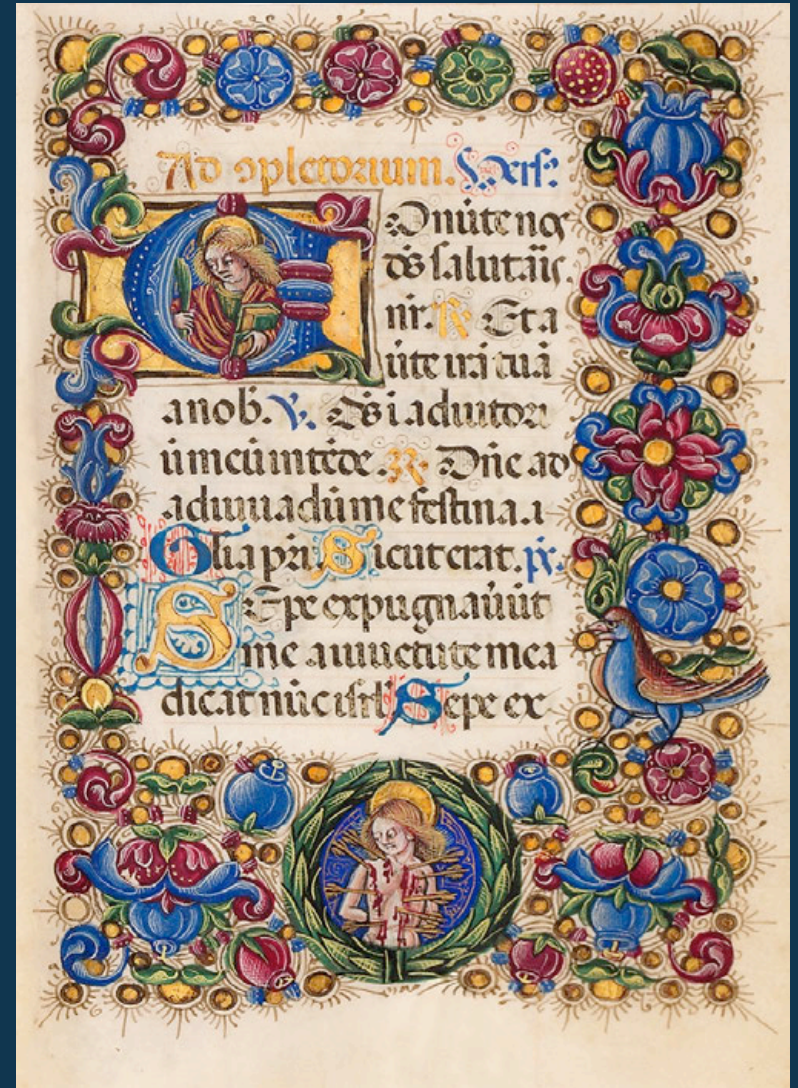 Ad ꝯpletorium. Vers:
COnũte nos
ds̃ salutãis
nr̃. R. Et a
ũte irã tuã
a nob̃. V. Ds̃ ĩ adiutori
ũ meũ intẽde. R. Dñe ad
adiuuãdũ me festina. ı
Glĩa pr̃i. Sicut erat. ps̃.
SEpe expugnaũũt
me a iuuẽtute mea
dicat nũc isrl̃. Sepe ex